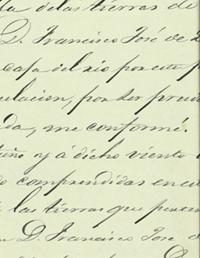 ta de las tierras de
D. Francisco José de
capa del rio por este p
ulacion, por ser preci
da, me conformé.
y á dicho viento
comprendidas en el
las tierras que perten
D. Francisco José de